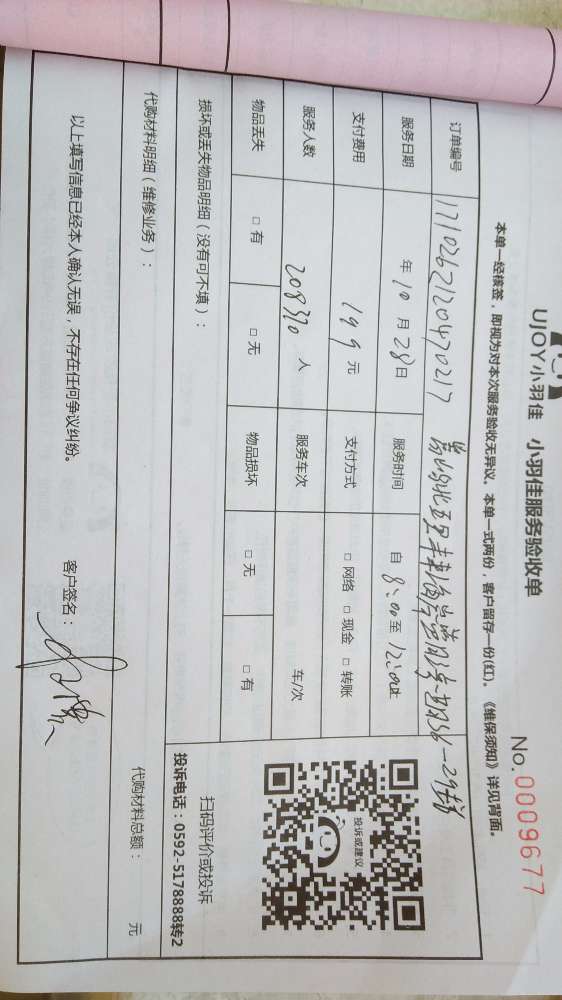 UJOY小羽佳 小羽佳服务验收单
No.0009677
本单一经核签，即视为对本次服务验收无异议。本单一式两份，客户留存一份(红)。《维保须知》详见背面。
订单编号 1710262120470217
服务日期 年 10 月 28 日 服务时间 自 8:00 至 12:00止
支付费用 199 元 支付方式 □ 网络 □ 现金 □ 转账
服务人数 208370 人 服务车次 车/次
物品丢失 □ 有 □ 无 物品损坏 □ 无 □ 有
投诉或建议
扫码评价或投诉
投诉电话：0592-5178888转2
损坏或丢失物品明细（没有可不填）：
代购材料明细（维修业务）：
代购材料总额： 元
以上填写信息已经本人确认无误，不存在任何争议纠纷。
客户签名：